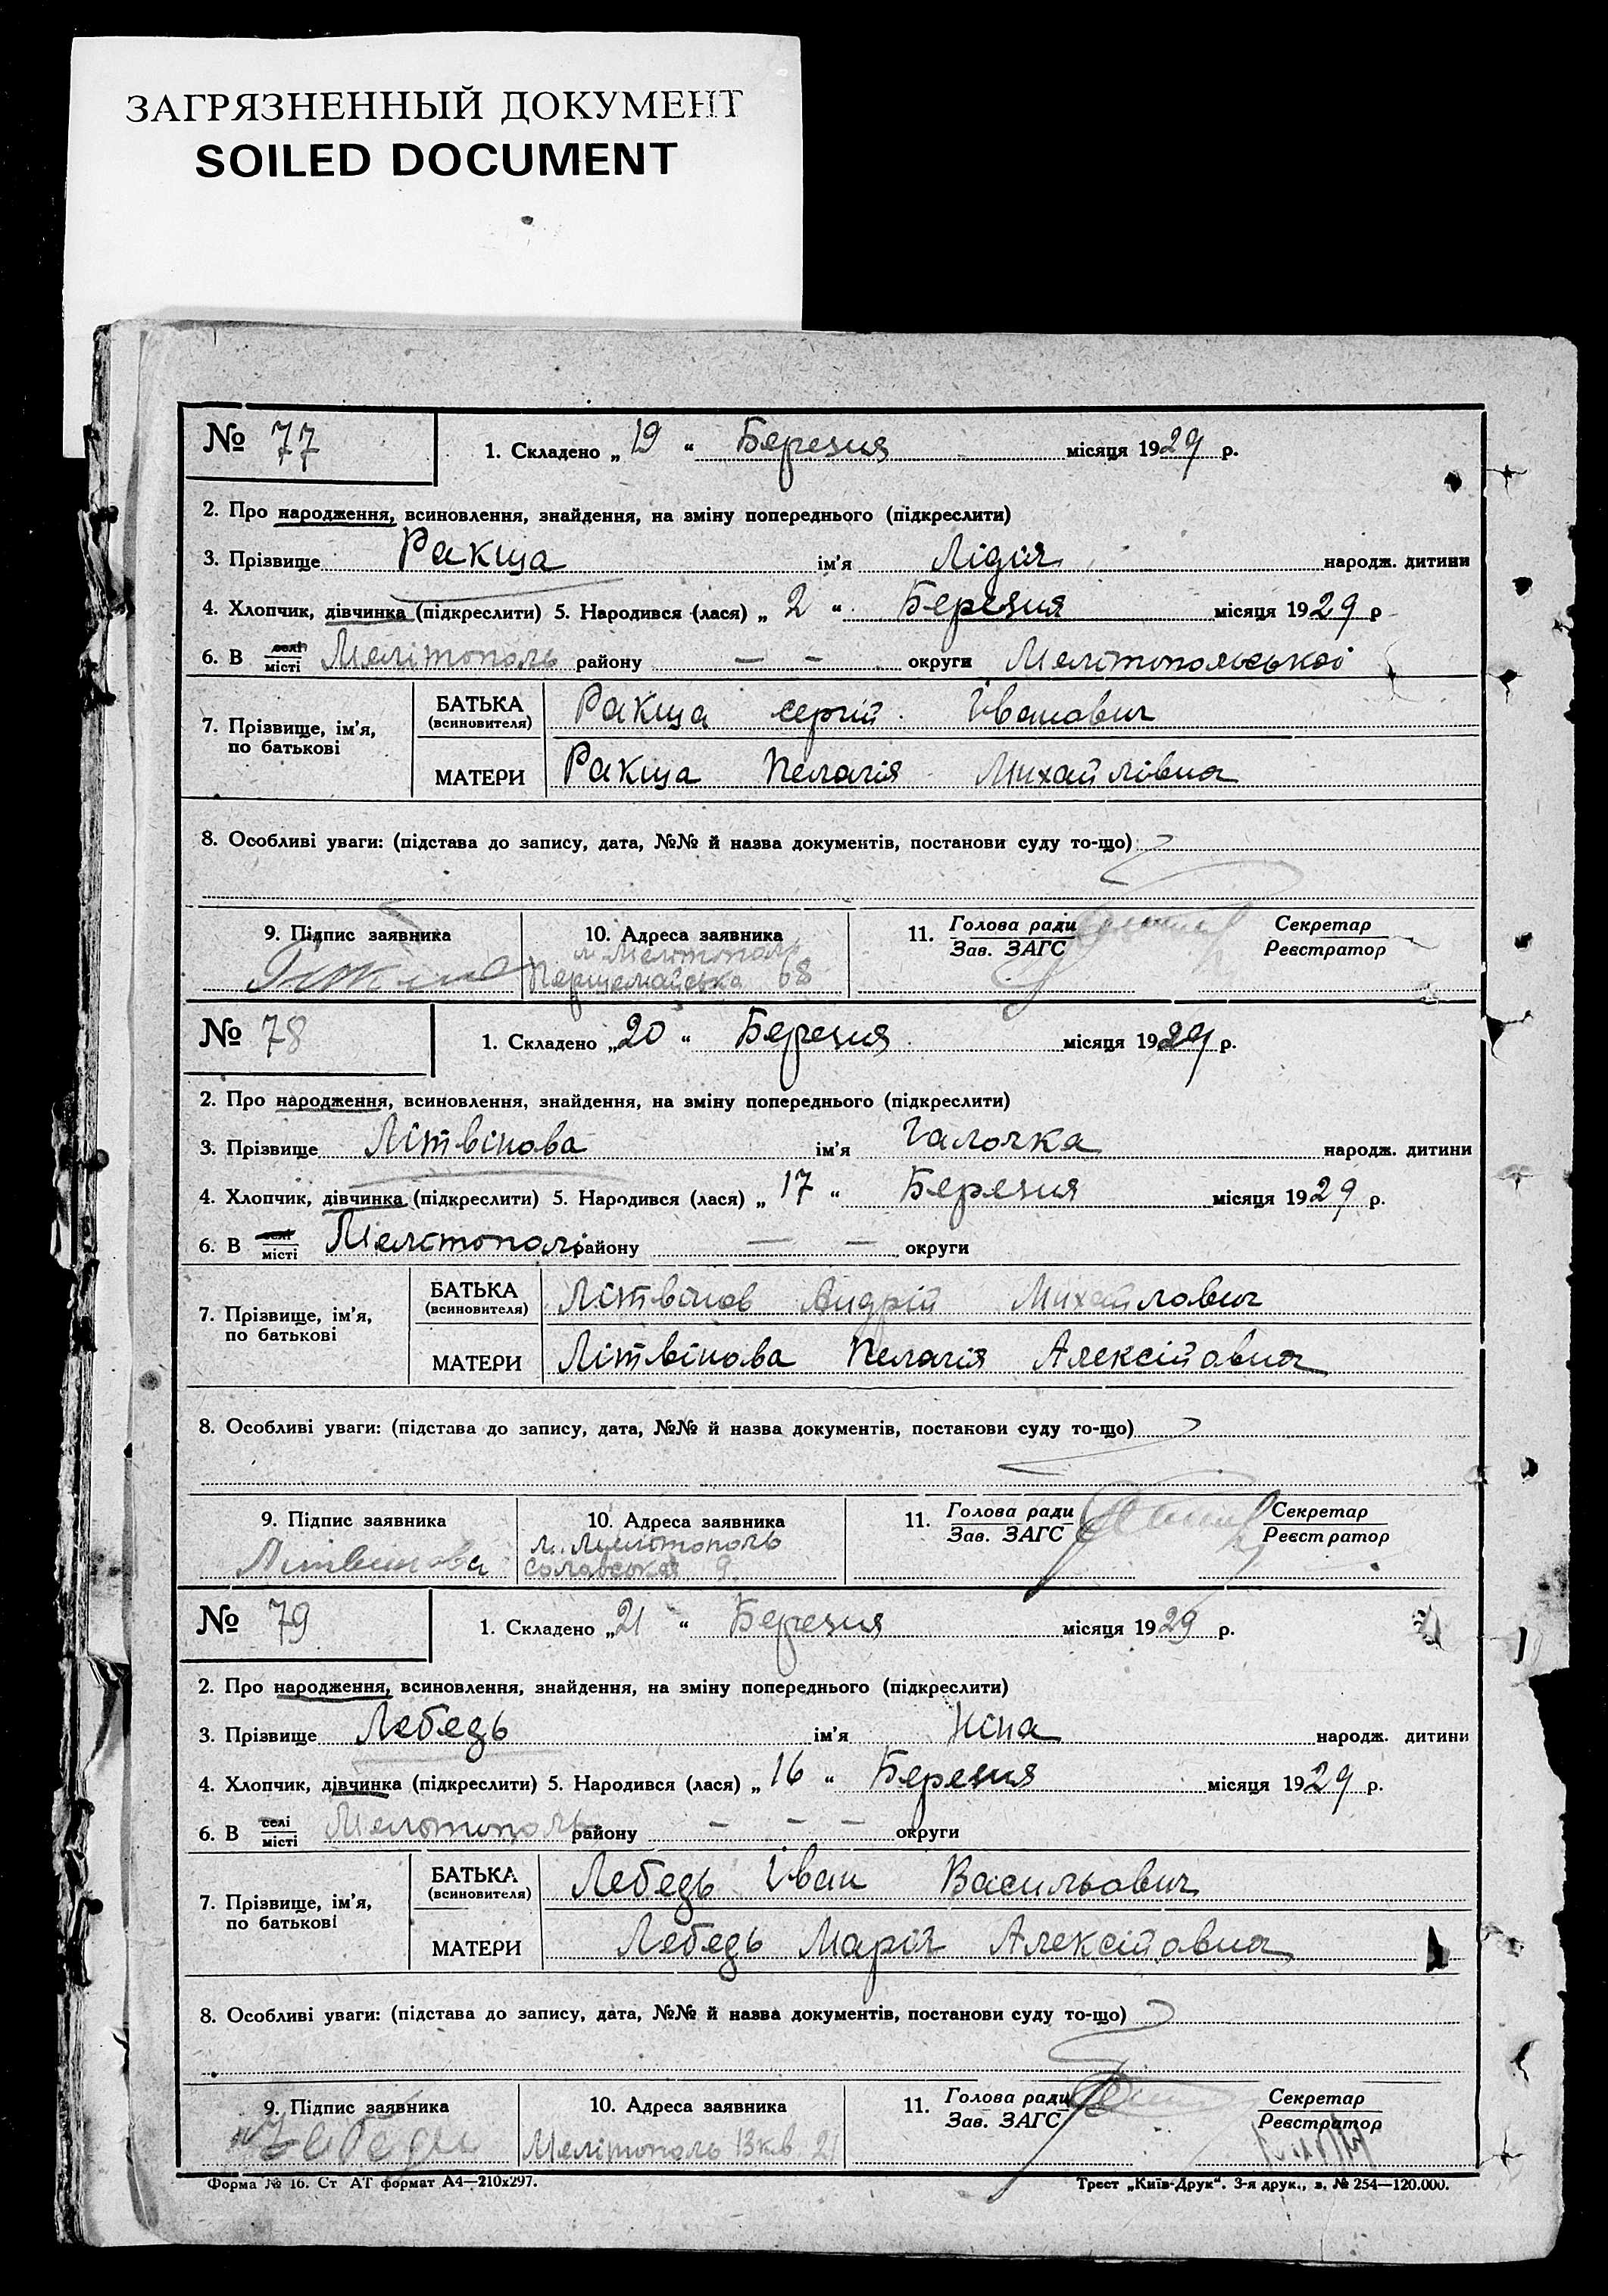 ЗАГРЯЗНЕННЫЙ ДОКУМЕНТ
SOILED DOCUMENT
№ 77
1. Складено „19“ Березня місяця 1929 р.
2. Про народження, всиновлення, знайдення, на зміну попереднього (підкреслити)
3. Прізвище Ракша ім'я Лідія народж. дитини
4. Хлопчик, дівчинка (підкреслити) 5. Народився (лася) „2“ Березня місяця 1929 р
6. В селі місті Мелітополь району — — округи Мелітопольської
7. Прізвище, ім'я, по батькові
БАТЬКА (всиновителя) Ракша сергій Іванович
МАТЕРИ Ракша Пелагія Михайлівна
8. Особливі уваги: (підстава до запису, дата, №№ й назва документів, постанови суду то-що)
9. Підпис заявника
10. Адреса заявника
м. Мелітополь
Першемайська 68
11. Голова ради Зав. ЗАГС
Секретар Реєстратор
№ 78
1. Складено „20“ Березня місяця 1929 р.
2. Про народження, всиновлення, знайдення, на зміну попереднього (підкреслити)
3. Прізвище Літвінова ім'я Галочка народж. дитини
4. Хлопчик, дівчинка (підкреслити) 5. Народився (лася) „17“ Березня місяця 1929 р.
6. В селі місті Мелітополі району — — округи
7. Прізвище, ім'я, по батькові
БАТЬКА (всиновителя) Літвінов Андрій Михайлович
МАТЕРИ Літвінова Пелагія Алексійовна
8. Особливі уваги: (підстава до запису, дата, №№ й назва документів, постанови суду то-що)
9. Підпис заявника
Літвинова
10. Адреса заявника
м. Мелітополь
9
11. Голова ради Зав. ЗАГС
Секретар Реєстратор
№ 79
1. Складено „21“ Березня місяця 1929 р.
2. Про народження, всиновлення, знайдення, на зміну попереднього (підкреслити)
3. Прізвище Лебедь ім'я Ніна народж. дитини
4. Хлопчик, дівчинка (підкреслити) 5. Народився (лася) „16“ Березня місяця 1929 р.
6. В селі місті Мелітополь району — — — округи
7. Прізвище, ім'я, по батькові
БАТЬКА (всиновителя) Лебедь Іван Васильович
МАТЕРИ Лебедь Марія Алексійовна
8. Особливі уваги: (підстава до запису, дата, №№ й назва документів, постанови суду то-що)
9. Підпис заявника
10. Адреса заявника
Мелітополь 13 кв. 21
11. Голова ради Зав. ЗАГС
Секретар Реєстратор
Форма № 16. Ст АТ формат А4—210х297.
Трест „Київ-Друк“. 3-я друк., з. № 254—120.000.